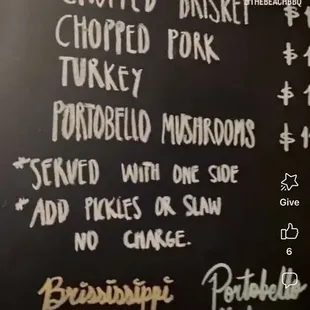 @THEBEACHBBQ
CHOPPED BRISKET $
CHOPPED PORK $
TURKEY $
PORTOBELLO MUSHROOMS $1
*SERVED WITH ONE SIDE
*ADD PICKLES OR SLAW
NO CHARGE.
Give
6
Brississippi Portobello